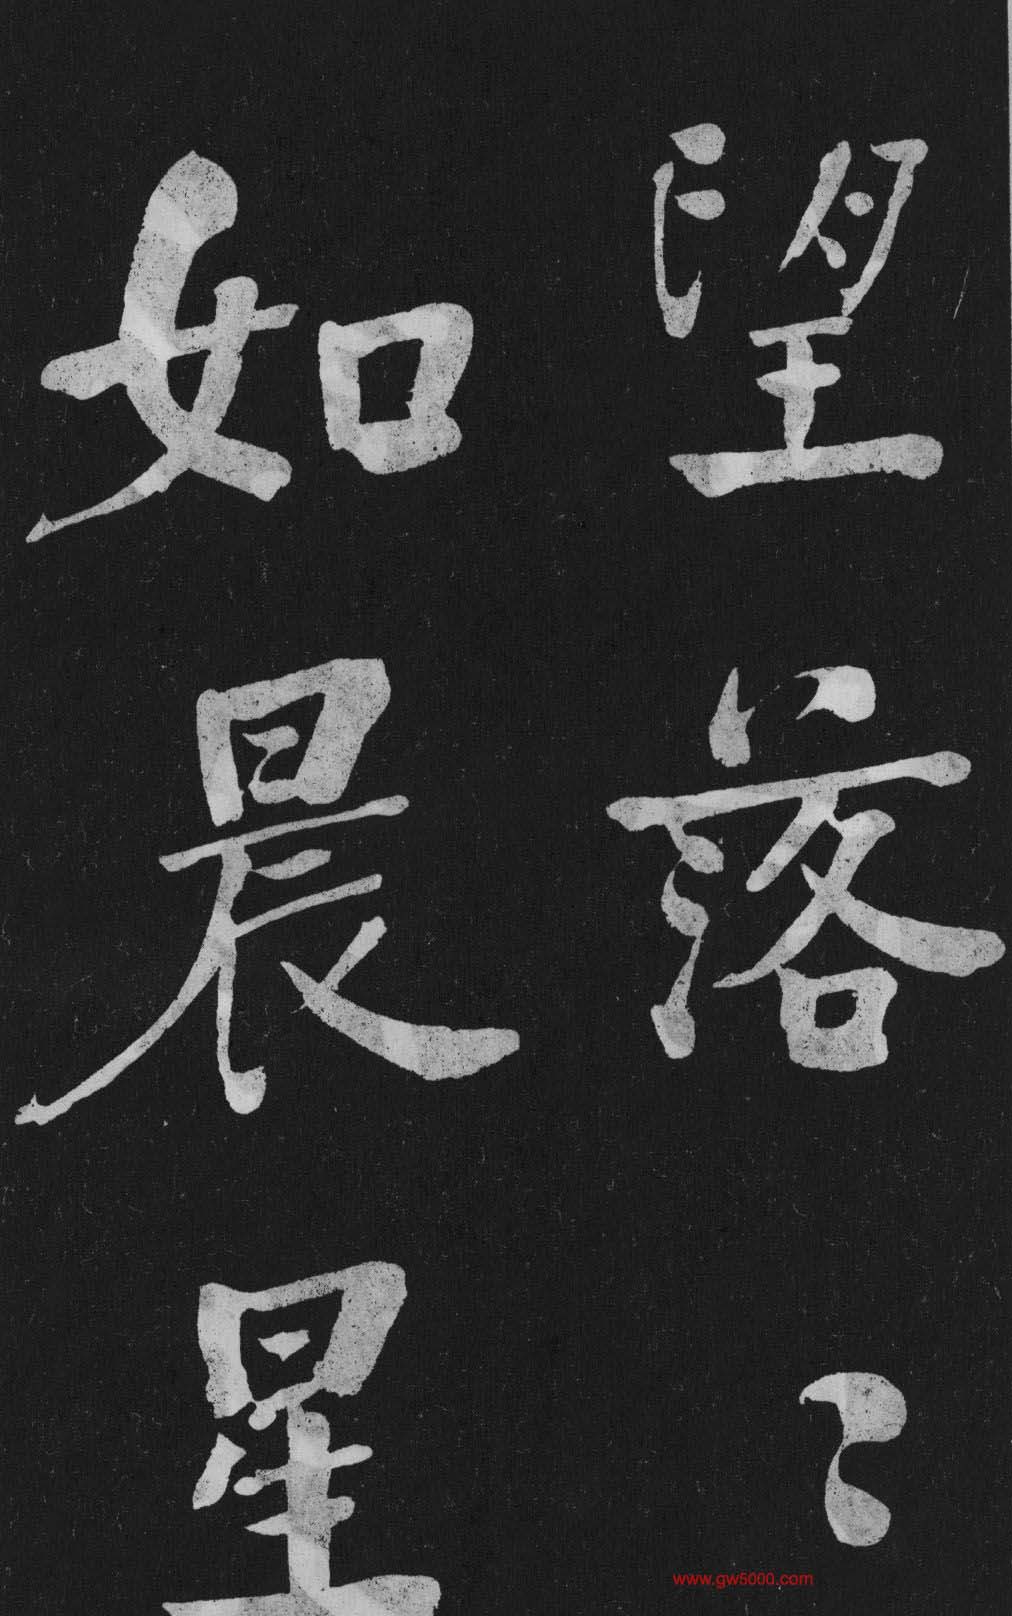 望落〻
如晨星
www.gw5000.com